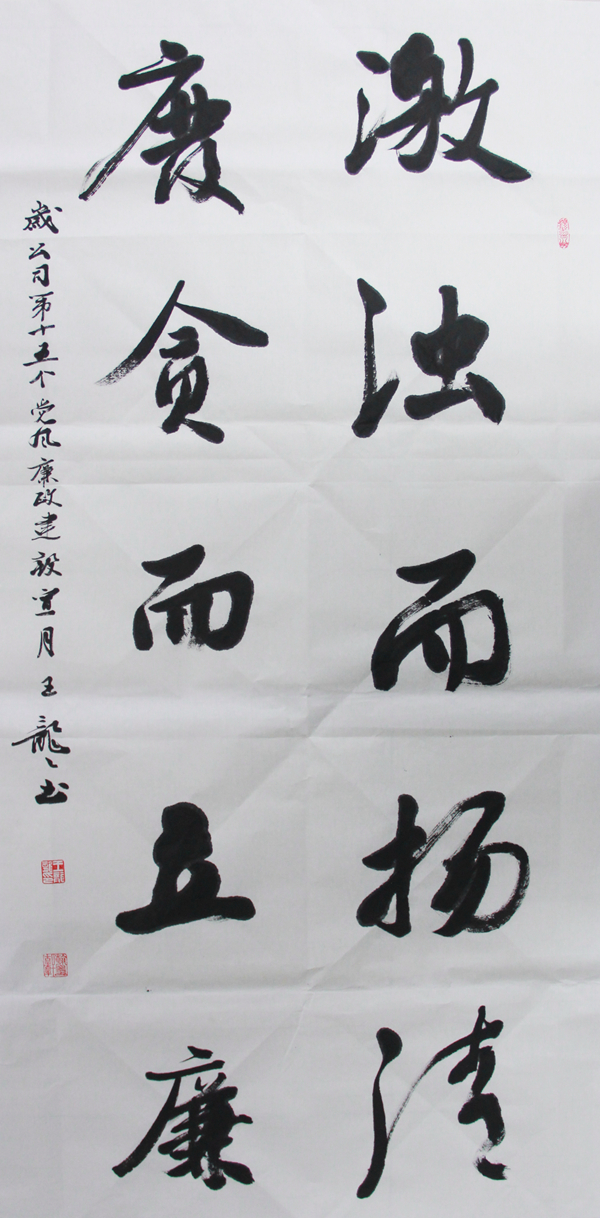 激浊而扬清
废贪而立廉
歲公司第十五个党风廉政建設宣月王龍々书